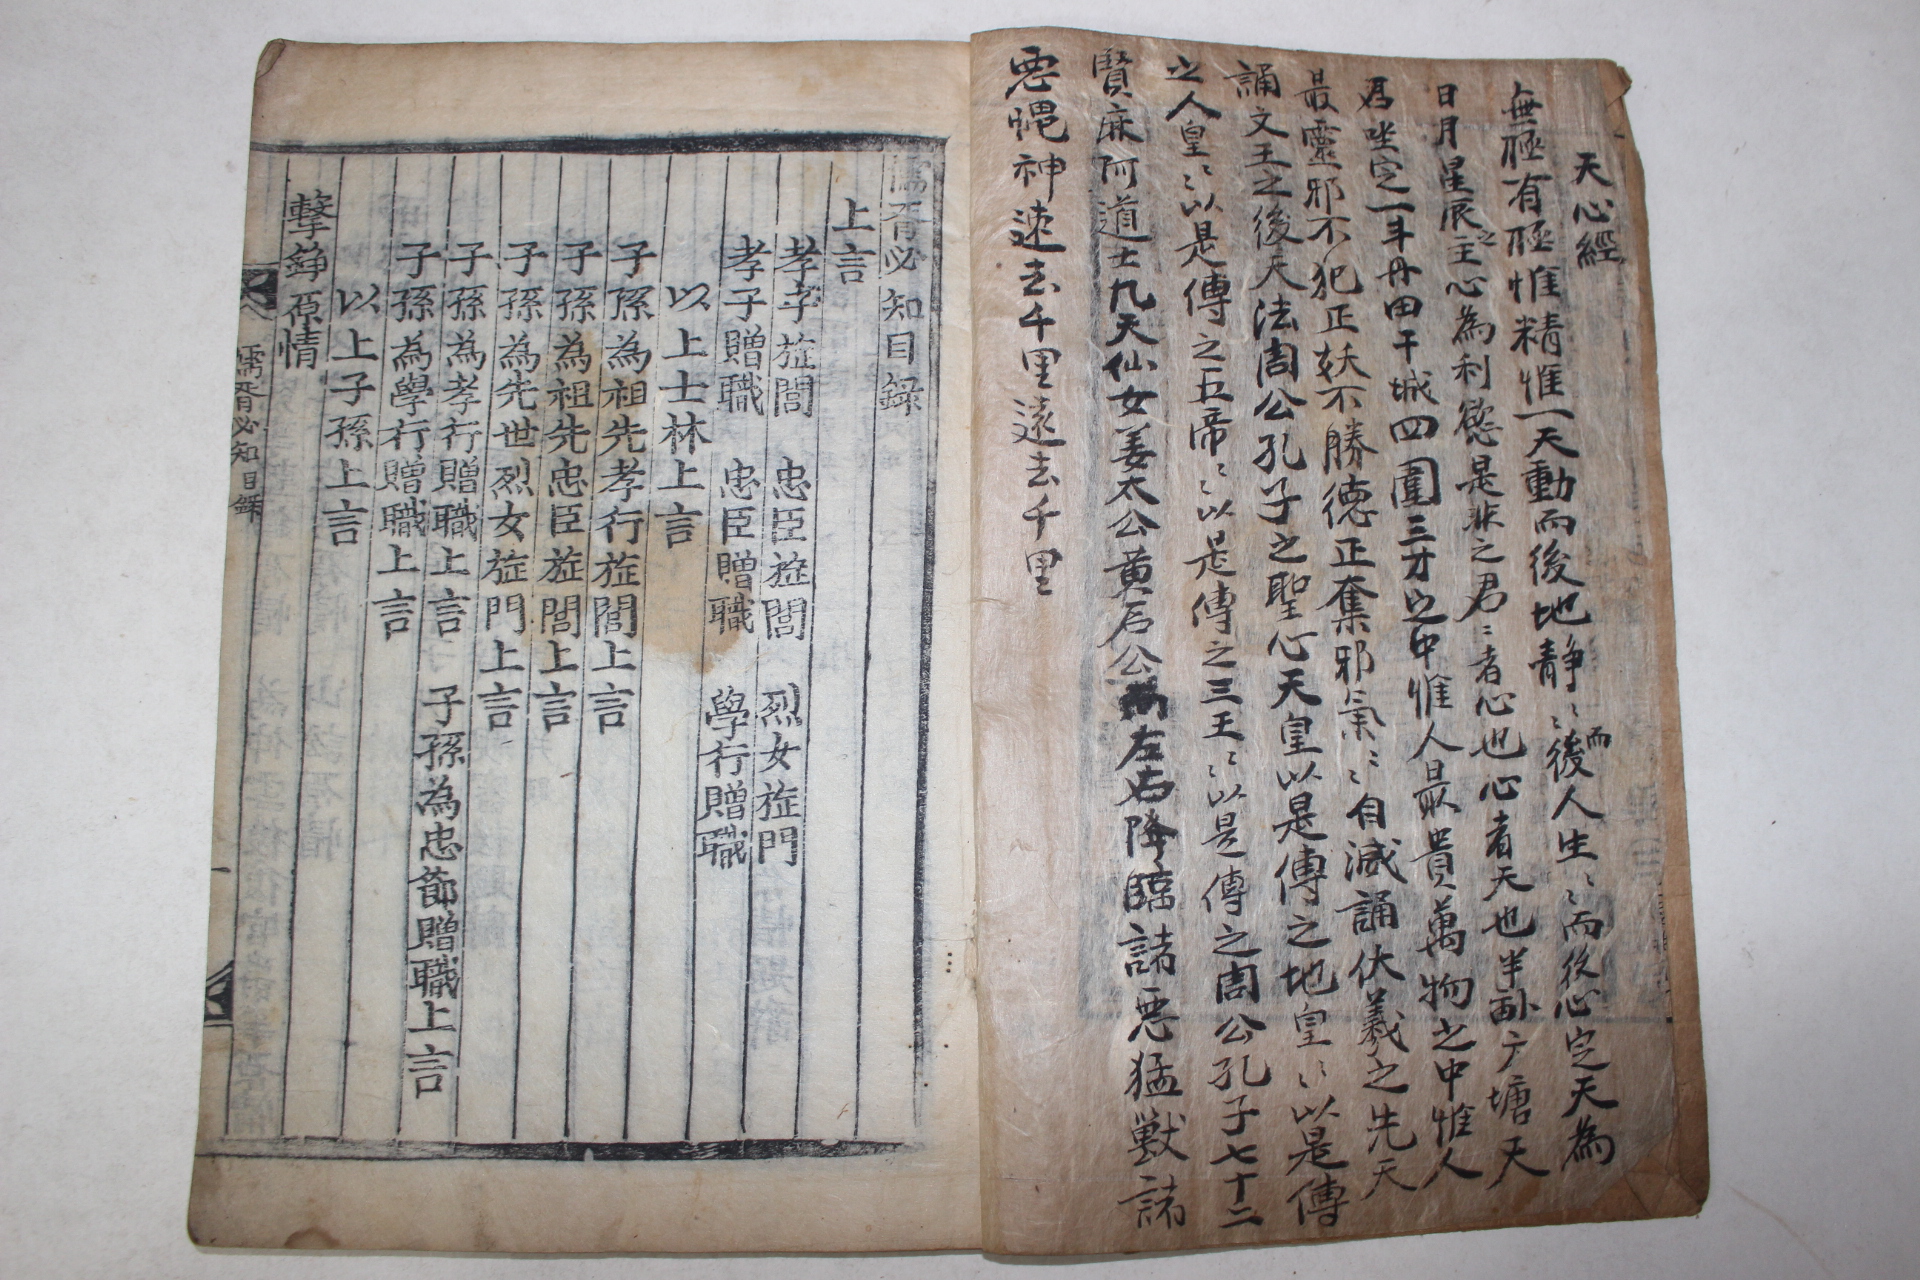 天心經
無極有極惟精惟一天動而後地静〻而後人生〻而後心定天為
日月星辰之主心為利慾是非之君〻者心也心者天也半畝方塘天
君坐定一斗丹田干城四圍三才之中惟人最貴萬物之中惟人
最靈邪不犯正妖不勝德正奪邪氣〻自滅誦伏羲之先天
誦文王之後天法周公孔子之聖心天皇以是傳之地皇〻以是傳
之人皇〻以是傳之五帝〻以是傳之三王〻以是傳之周公孔子七十二
賢麻阿道士九天仙女姜太公黄石公左右降臨諸惡猛獸諸
惡神速去千里遠去千里
儒胥必知目録
上言
孝子旌閭 忠臣旌閭 烈女旌門
孝子贈職 忠臣贈職 學行贈職
以上士林上言
子孫為祖先孝行旌閭上言
子孫為祖先忠臣旌閭上言
子孫為先世烈女旌門上言
子孫為孝行贈職上言 子孫為忠節贈職上言
子孫為學行贈職上言
以上子孫上言
擊錚原情
儒胥必知目録